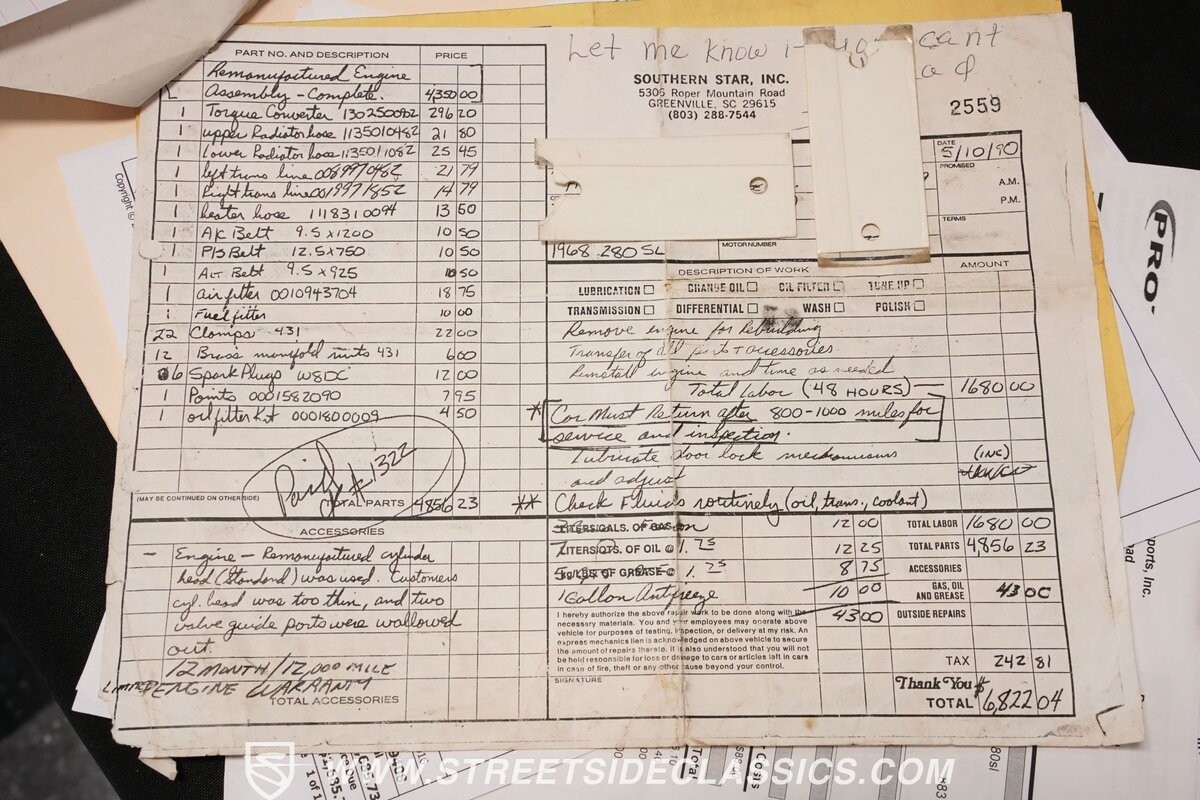 Let me know cant
SOUTHERN STAR, INC.
5305 Roper Mountain Road
GREENVILLE, SC 29615
(803) 288-7544
2559
DATE
5/10/90
PROMISED
A.M.
P.M.
TERMS
1968 280SL
MOTOR NUMBER
PART NO. AND DESCRIPTION PRICE
Remanufactured Engine
Assembly - Complete. 4,350 00
1 Torque Converter 1302500902 296 20
1 upper Radiator hose 1135010482 21 80
1 Lower Radiator hose 1135011082 25 45
1 left trans line 0089970982 21 79
1 Right trans line 0019971852 14 79
1 heater hose 1118310094 13 50
1 A/C Belt 9.5 x 1200 10 50
1 P/S Belt 12.5 x 750 10 50
1 Alt. Belt 9.5 x 925 10 50
1 air filter 0010943704 18 75
1 Fuel filter 10 00
22 Clamps 431 22 00
12 Brass manifold nuts 431 6 00
6 Spark Plugs W8DC 12 00
1 Points 0001582090 7 95
1 oil filter kit 0001800009 4 50
Paid #1322
(MAY BE CONTINUED ON OTHER SIDE)
TOTAL PARTS 4856 23
ACCESSORIES
— Engine — Remanufactured cylinder
head (standard) was used. Customers
cyl. head was too thin, and two
valve guide ports were wallowed
out.
12 MONTH/12,000 MILE
LIMITED ENGINE WARRANTY
TOTAL ACCESSORIES
DESCRIPTION OF WORK AMOUNT
LUBRICATION CHANGE OIL OIL FILTER TUNE UP
TRANSMISSION DIFFERENTIAL WASH POLISH
Remove engine for rebuilding
Transfer of all parts + accessories
Reinstall engine and tune as needed
Total Labor (48 HOURS) — 1680 00
* Car Must Return after 800-1000 miles for
service and inspection.
Lubricate door lock mechanisms (INC)
and adjust
** Check Fluids routinely (oil, trans., coolant)
LITERS/GALS. OF GAS 12 00
LITERS/QTS. OF OIL @ 1.75 12 25
KG/LBS OF GREASE @ 1.75 8 75
1 Gallon Antifreeze 10 00
43 00
TOTAL LABOR 1680 00
TOTAL PARTS 4,856 23
ACCESSORIES
GAS, OIL
AND GREASE 43 00
OUTSIDE REPAIRS
TAX 242 81
Thank You
TOTAL $6,822 04
I hereby authorize the above repair work to be done along with the
necessary materials. You and your employees may operate above
vehicle for purposes of testing, inspection, or delivery at my risk. An
express mechanics lien is acknowledged on above vehicle to secure
the amount of repairs thereto. It is also understood that you will not
be held responsible for loss or damage to cars or articles left in cars
in case of fire, theft or any other cause beyond your control.
SIGNATURE
Copyright ©
PRO
ports, Inc.
oad
WWW.STREETSIDECLASSICS.COM